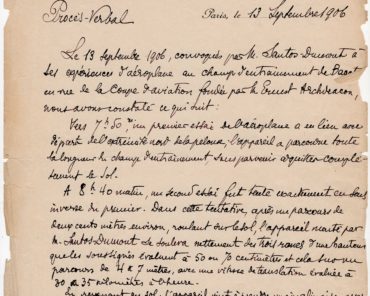 Procès-Verbal
Paris, le 13 Septembre 1906
Le 13 septembre 1906, convoqués par M. Santos-Dumont à
ses expériences d'aéroplane au champ d'entraînement de Bagatelle
en vue de la Coupe d'aviation fondée par M. Ernest Archdeacon,
nous avons constaté ce qui suit :
Vers 7h50, un premier essai de l'aéroplane a eu lieu avec
départ de l'extrémité nord de la pelouse, l'appareil a parcouru toute
la longueur du champ d'entraînement sans parvenir à quitter complè-
tement le sol.
A 8h40 matin, un second essai fut tenté exactement en sens
inverse du premier. Dans cette tentative, après un parcours de
deux cents mètres environ, roulant sur le sol, l'appareil monté par
M. Santos-Dumont se souleva nettement des trois roues d'une hauteur
que les soussignés évaluent à 50 ou 70 centimètres et cela sur un
parcours de 4 à 7 mètres, avec une vitesse de translation évaluée à
30 à 35 kilomètres à l'heure.
En revenant au sol, l'appareil